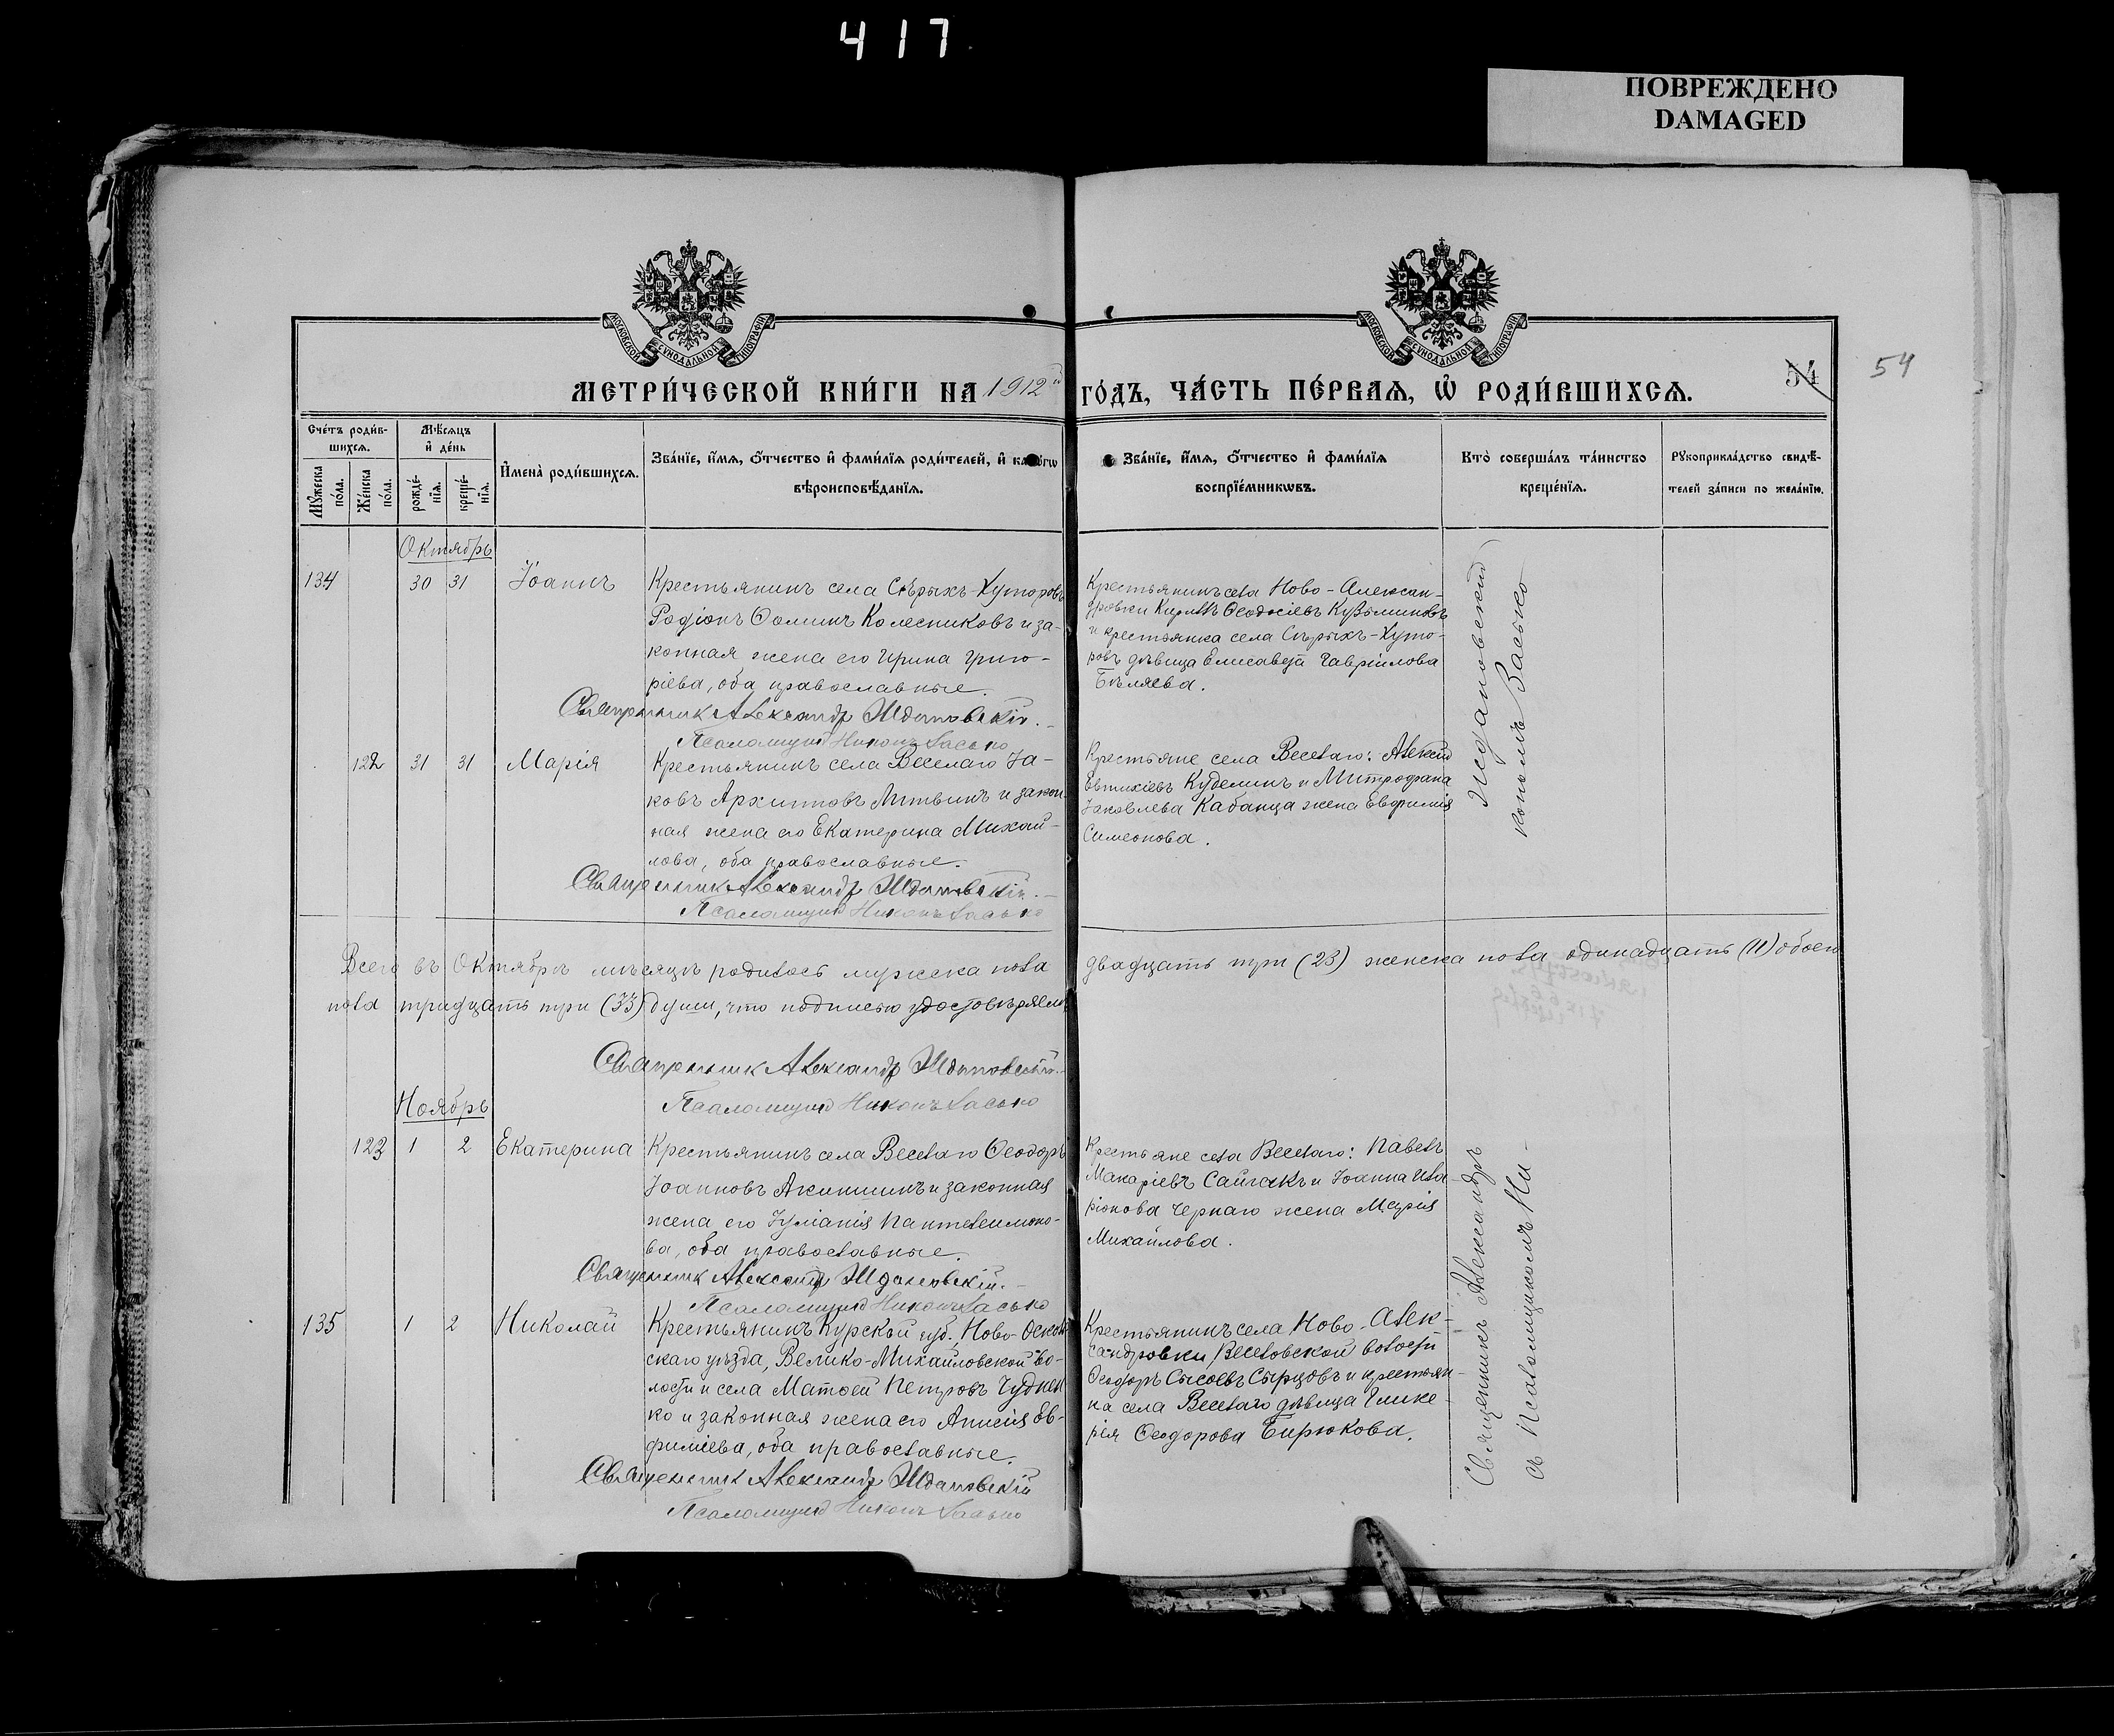 417
ПОВРЕЖДЕНО
DAMAGED
МОСКОВСКОЙ СѴНОДАЛЬНОЙ ТИПОГРАФІИ
МОСКОВСКОЙ СѴНОДАЛЬНОЙ ТИПОГРАФІИ
МЕТРИ́ЧЕСКОЙ КНИ́ГИ НА 1912й ГО́ДЪ, ЧА́СТЬ ПЕ́РВАЯ, Ѡ РОДИ́ВШИХСЯ.
54
54
Сче́тъ роди́в-
шихся.
Мѣ́сяцъ
и де́нь
Мꙋ́жеска
по́ла.
Же́нска
по́ла.
рожде́-
нїя.
креще́-
нїя.
И́мена роди́вшихся.
Зва́нїе, и́мя, ѻ́тчество и фами́лїя роди́телей, и како́гѡ
вѣроисповѣ́данїя.
Зва́нїе, и́мя, ѻ́тчество и фами́лїя
воспрїе́мникѡвъ.
Кто̀ соверша́лъ та́инство
креще́нїя.
Рꙋкоприкла́дство свидѣ́-
телей за́писи по жела́нїю.
Октябрь
134 30 31 Іоаннъ
Крестьянинъ села Сѣрыхъ-Хуторовъ
Родіонъ Ѳоминъ Колесниковъ и за-
конная жена его Ирина Григо-
ріева, оба православные.
Священникъ Александръ Ждановскій.
Псаломщикъ Никонъ Васько
Крестьянинъ села Ново-Алексан-
дровки Кириллъ Ѳеодосіевъ Кузьминовъ
и крестьянка села Сѣрыхъ-Хуто-
ровъ дѣвица Елисавета Гавріилова
Бѣляева.
122 31 31 Марія
Крестьянинъ села Веселаго Іа-
ковъ Архиповъ Литвинъ и закон-
ная жена его Екатерина Михай-
лова, оба православные.
Священникъ Александръ Ждановскій.
Псаломщикъ Никонъ Васько
Крестьяне села Веселаго: Алексій
Евтихіевъ Куделинъ и Митрофана
Іаковлева Кабанца жена Евфимія
Симеонова.
Ждановскій
кономъ Васько
Всего въ Октябрѣ мѣсяцѣ родилось мужеска пола двадцать три (23) женска пола одинадцать (11) обоего
пола тридцать три (33) души, что подписью удостовѣряемъ
Священникъ Александръ Ждановскій.
Псаломщикъ Никонъ Васько
Ноябрь
123 1 2 Екатерина
Крестьянинъ села Веселаго Ѳеодоръ
Іоанновъ Акиншинъ и законная
жена его Іуліанія Пантелеимоно-
ва, оба православные.
Священникъ Александръ Ждановскій.
Псаломщикъ Никонъ Васько
Крестьяне села Веселаго: Павелъ
Макаріевъ Сайгакъ и Іоанна Ила-
ріонова Чернаго жена Марія
Михайлова.
135 1 2 Николай
Крестьянинъ Курской губ. Ново-Осколь-
скаго уѣзда, Велико-Михайловской во-
лости и села Матѳей Петровъ Чуднен-
ко и законная жена его Анисія Ев-
фиміева, оба православные.
Священникъ Александръ Ждановскій
Псаломщикъ Никонъ Васько
Крестьянинъ села Ново-Алек-
сандровки Веселовской волости
Ѳеодоръ Сысоевъ Сырцовъ и крестьян-
ка села Веселаго дѣвица Глике-
рія Ѳеодорова Бирюкова.
Священникъ Александръ
съ Псаломщикомъ Ни-